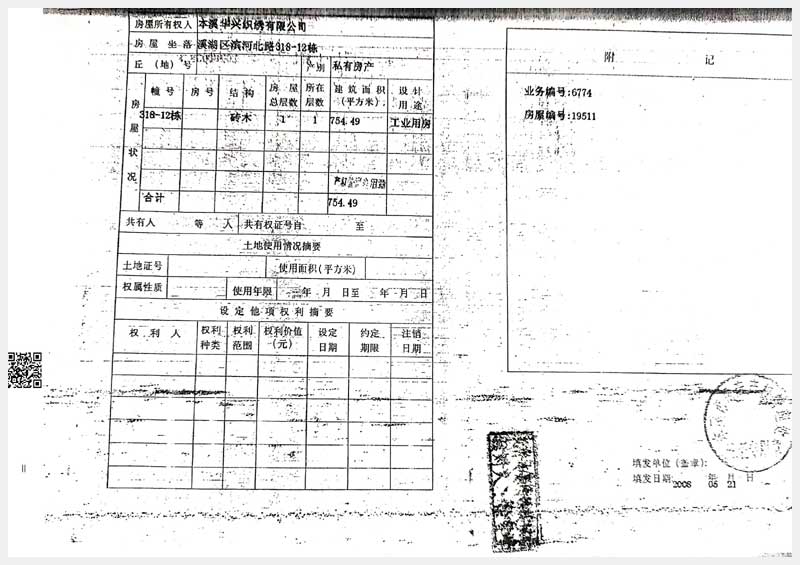 房屋所有权人 本溪华兴织绣有限公司
房屋坐落 溪湖区滨河北路318-12栋
丘(地)号 产别 私有房产
房屋状况
幢号 房号 结构 房屋总层数 所在层数 建筑面积(平方米) 设计用途
318-12栋 砖木 1 1 754.49 工业用房
合计 754.49
共有人 等 人 共有权证号自 至
土地使用情况摘要
土地证号 使用面积(平方米)
权属性质 使用年限 年 月 日至 年 月 日
设定他项权利摘要
权利人 权利种类 权利范围 权利价值(元) 设定日期 约定期限 注销日期
附 记
业务编号:6774
房屋编号:19511
填发单位(盖章):
填发日期: 2008 年 05 月 21 日